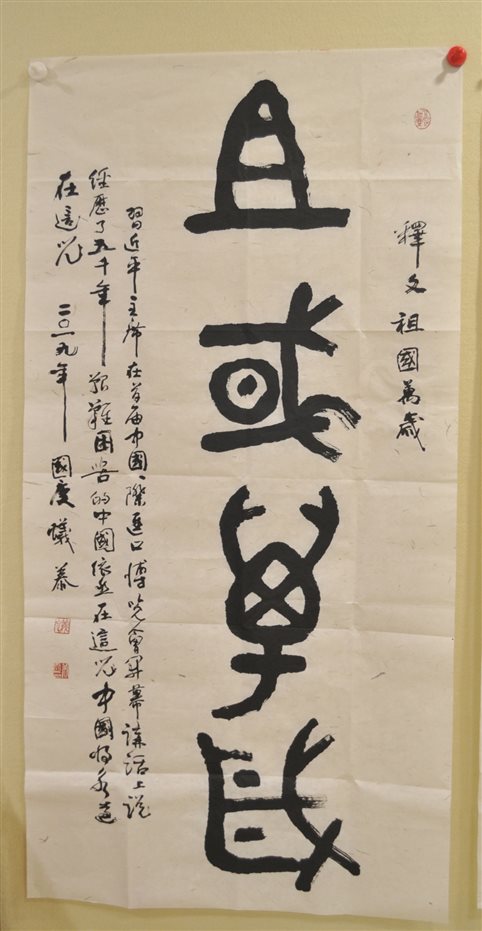 釋文祖國萬歲
且或萬歲
習近平主席在首届中國、際進口博览會開幕講話上説
經歷了五千年艱難困苦的中國依然在這兒中國將永遠
在這兒 二〇一九年 國慶